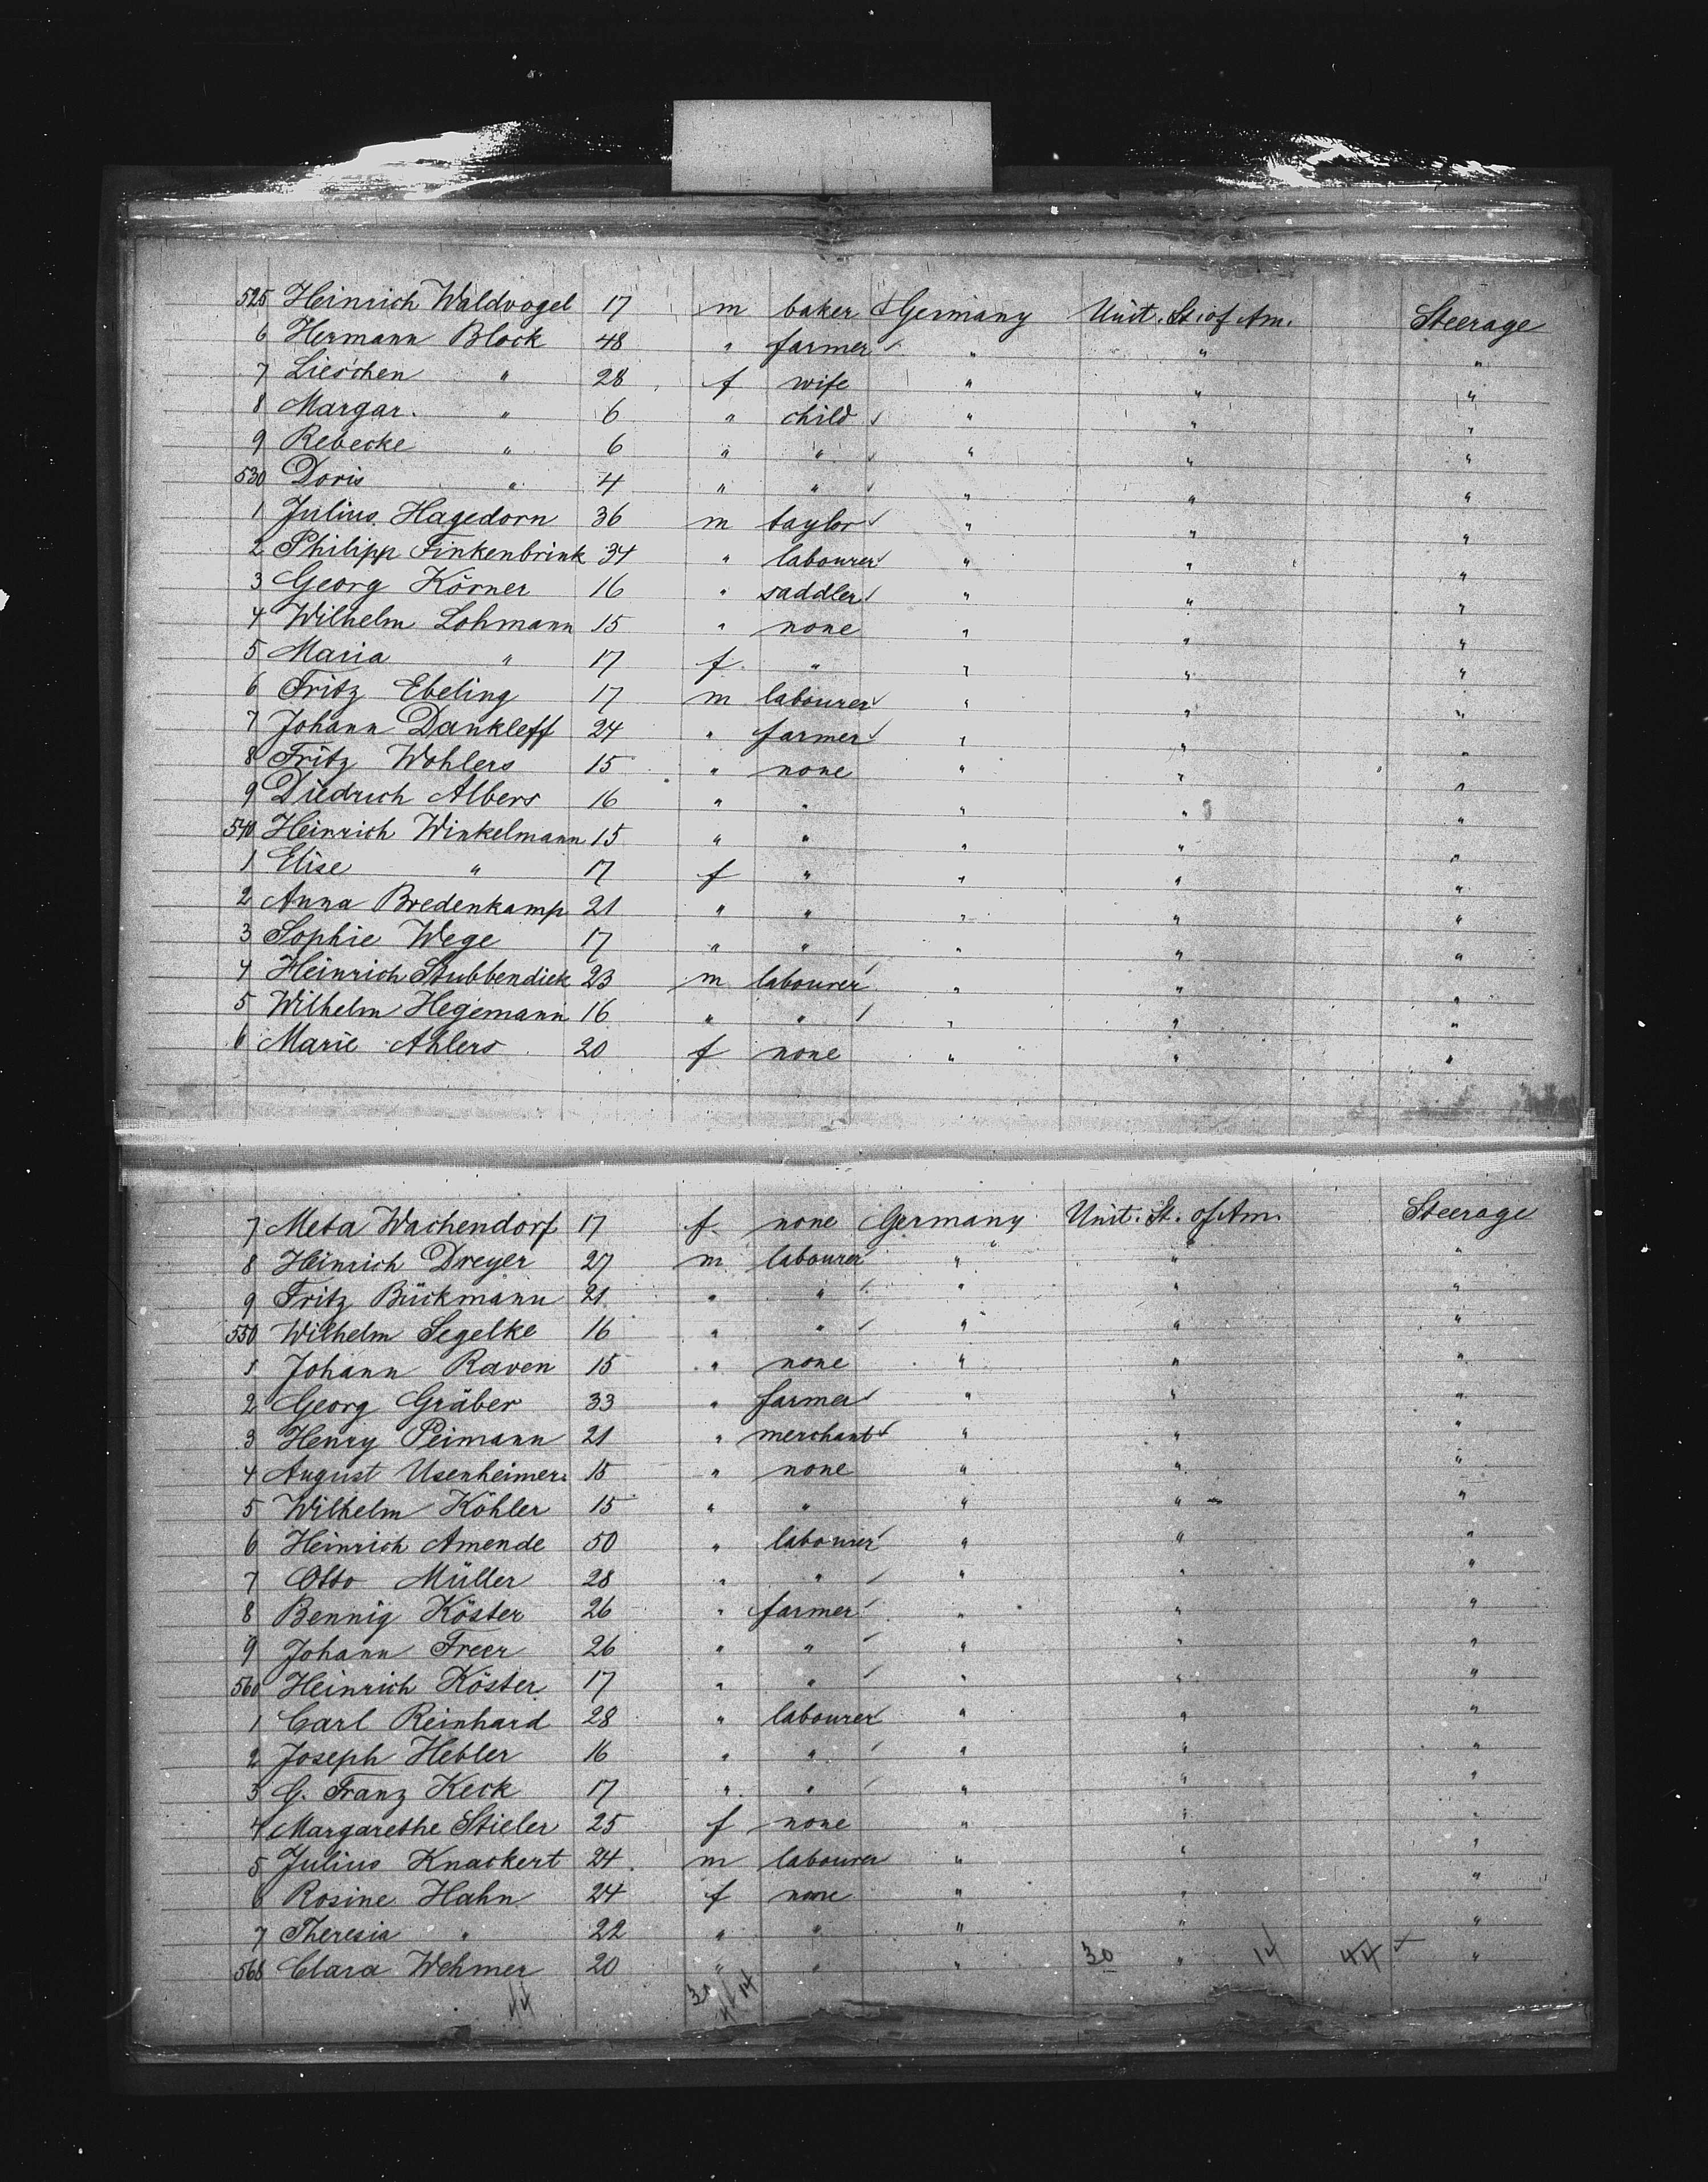 525 Heinrich Waldvogel 17 m baker Germany Unit. St. of Am. Steerage
6 Hermann Block 48 " farmer " " "
7 Lieschen " 28 f wife " " "
8 Margar. " 6 " child " " "
9 Rebecke " 6 " " " " "
530 Doris " 4 " " " " "
1 Julius Hagedorn 36 m taylor " " "
2 Philipp Finkenbrink 34 " labourer " " "
3 Georg Körner 16 " saddler " " "
4 Wilhelm Lohmann 15 " none " " "
5 Maria " 17 f " " " "
6 Fritz Ebeling 17 m labourer " " "
7 Johann Dankleff 24 " farmer " " "
8 Fritz Wohlers 15 " none " " "
9 Diedrich Albers 16 " " " " "
540 Heinrich Winkelmann 15 " " " " "
1 Elise " 17 f " " " "
2 Anna Bredenkamp 21 " " " " "
3 Sophie Wege 17 " " " " "
4 Heinrich Stubbendiek 23 m labourer " " "
5 Wilhelm Hegemann 16 " " " " "
6 Marie Ahlers 20 f none " " "
7 Meta Wachendorf 17 f none Germany Unit. St. of Am. Steerage
8 Heinrich Dreyer 27 m labourer " " "
9 Fritz Bückmann 21 " " " " "
550 Wilhelm Segelke 16 " " " " "
1 Johann Raven 15 " none " " "
2 Georg Gräber 33 " farmer " " "
3 Henry Peimann 21 " merchant " " "
4 August Usenheimer 15 " none " " "
5 Wilhelm Köhler 15 " " " " "
6 Heinrich Amende 50 " labourer " " "
7 Otto Müller 28 " " " " "
8 Bennig Köster 26 " farmer " " "
9 Johann Freer 26 " " " " "
560 Heinrich Köster 17 " " " " "
1 Carl Reinhard 28 " labourer " " "
2 Joseph Hebler 16 " " " " "
3 G. Franz Keck 17 " " " " "
4 Margarethe Stieler 25 f none " " "
5 Julius Knackert 24 m labourer " " "
6 Rosine Hahn 24 f none " " "
7 Theresia " 22 " " " " "
568 Clara Wehmer 20 " " " 30 " 14 44 "
44 30 14